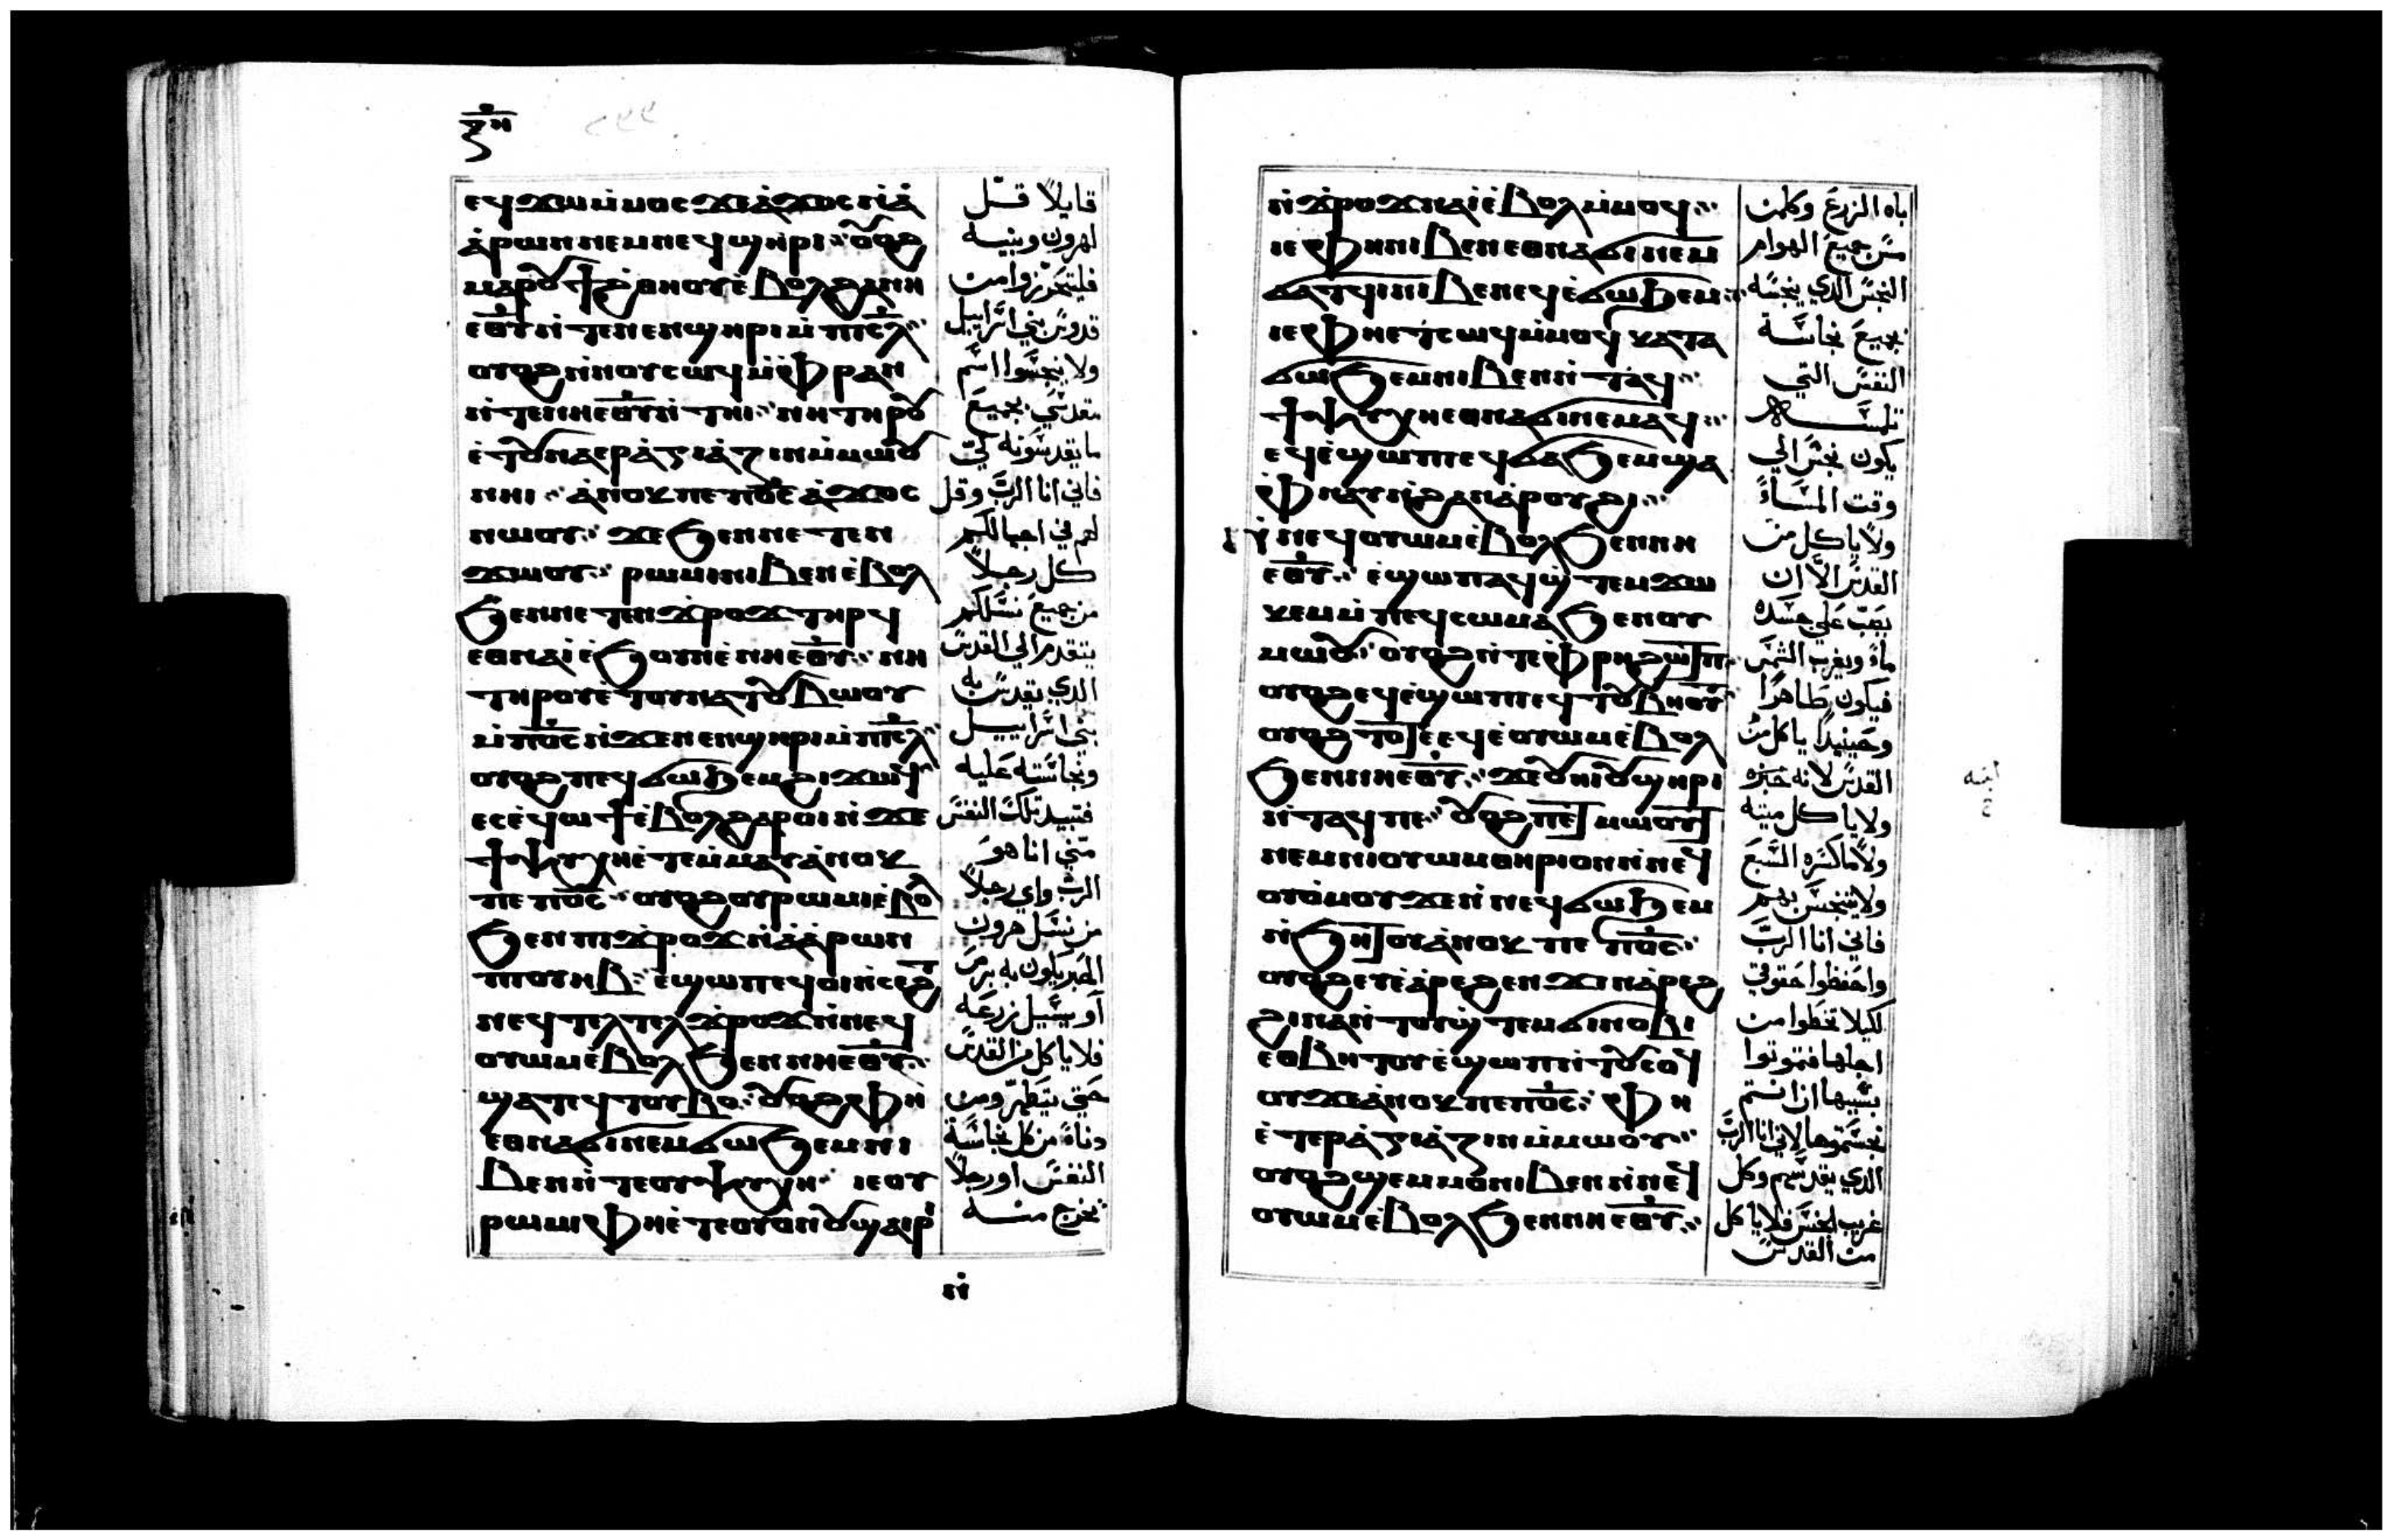 ⲍ̅ⲏ̅
ⲉϥϫⲱⲙ̀ⲙⲟⲥϫⲉⲁ̀ϫⲟⲥⲛ̀ⲁ̀
ⲁ̀ⲣⲱⲛⲛⲉⲙⲛⲉϥϣⲏⲣⲓ ⲟⲩⲟϩ
ⲙⲁⲣⲟⲩϯϩ̀ⲑⲏⲟⲩⲉ̀ⲃⲟⲗϩⲁⲛⲏ
ⲉⲑⲩⲛ̀ⲧⲉⲛⲉⲛϣⲏⲣⲓⲙ̀ⲡⲓⲥⲗ
ⲟⲩⲟϩⲛ̀ⲛⲟⲩⲥⲱϥⲙ̀ⲫⲣⲁⲛ
ⲛ̀ⲧⲉⲛⲏⲉⲑⲩⲛ̀ⲧⲏⲓ ⲛⲏⲧⲏⲣⲟⲩ
ⲉ̀ⲧⲟⲩⲛⲁⲉⲣⲁ̀ⲅⲓⲁ̀ⲍⲓⲛⲙ̀ⲙⲱⲟⲩ
ⲛⲏⲓ ⲁ̀ⲛⲟⲕⲡⲉⲡⲟ̅ⲥ̅ⲁ̀ϫⲟⲥ
ⲛⲱⲟⲩ ϫⲉϧⲉⲛⲛⲉⲧⲉⲛ
ϫⲱⲟⲩ ⲣⲱⲙⲓⲛⲓⲃⲉⲛⲉ̀ⲃⲟⲗ
ϧⲉⲛⲛⲉⲧⲉⲛϫ̀ⲣⲟϫⲧⲏⲣϥ
ⲉⲑⲛⲁⲓ̀ⲉ̀ϧⲟⲩⲛⲉ̀ⲛⲏⲉⲑⲩ ⲛⲏ
ⲧⲏⲣⲟⲩⲉ̀ⲧⲟⲩⲛⲁⲧⲟⲩⲃⲱⲟⲩ
ⲙ̀ⲡⲟ̅ⲥ̅ⲛ̀ϫⲉⲛⲉⲛϣⲏⲣⲓⲙ̀ⲡⲓⲥⲗ
ⲟⲩⲟϩⲡⲉϥϭⲱϧⲉⲙϩⲓϫⲱϥ
ⲉⲥⲉ̀ϥⲱϯⲉ̀ⲃⲟⲗϩⲁⲣⲟⲓⲛ̀ϫⲉ
ϯⲯⲩⲭⲏⲉ̀ⲧⲉⲙ̀ⲙⲁⲩⲁ̀ⲛⲟⲕ
ⲡⲉⲡⲟ̅ⲥ̅ ⲟⲩⲟϩⲟⲩⲣⲱⲙⲓⲉ̀ⲃⲟⲗ
ϧⲉⲛⲡⲓϫ̀ⲣⲟϫⲛ̀ⲁ̀ⲁ̀ⲣⲱⲛ
ⲡⲓⲟⲩⲏⲃ ⲉ̀ϣⲱⲡⲉϥⲟⲓⲛ̀ⲥⲉϩⲧ
ⲛⲉϥⲧⲉⲗⲧⲉⲗϫ̀ⲣⲟϫⲛ̀ⲛⲉϥ
ⲟⲩⲱⲙⲉ̀ⲃⲟⲗϧⲉⲛⲛⲏⲉⲑⲩ
ϣⲁⲧⲉϥⲧⲟⲩⲃⲟ ⲟⲩⲟϩⲫⲏ
ⲉⲑⲛⲁϭⲓⲛⲉⲙϭⲱϧⲉⲙⲛⲓ
ⲃⲉⲛⲛ̀ⲧⲉⲟⲩⲯⲩⲭⲏ ⲓⲉⲟⲩ
ⲣⲱⲙⲓⲫⲏⲉ̀ⲧⲉⲟⲩⲟⲛⲟⲩϣⲁⲓⲣ̀
قايلاً قل
لهرون وبنيه
فليتحرزوا من
قدوس بني اسرايل
ولا ينجسوا اسم
مقدسي بجميع
ما يقدسونه لي
فاني انا الرب وقل
لهم في اجيالكم
كل رجلاً
من جميع نسلكم
يتقدم الي القدس
الدي يقدس به
بني اسراييل
ونجاسته عليه
فتبيد تلك النفس
مني انا هو
الرب واي رجلاً
من نسل هرون
الحبر يكون به برص
او يسيل زرعه
فلا ياكل من القدس
حتي يتطهر ومن
دناه من كل نجاسة
النفس او رجلاً
يخرج منه
ⲛ̀
ⲛ̀ϫ̀ⲣⲟϫⲛⲁⲓ̀ⲉ̀ⲃⲟⲗⲙ̀ⲙⲟϥ
ⲓⲉⲫⲏⲛⲓⲃⲉⲛⲉⲑⲛⲁϭⲓⲛⲉⲙ
ϭⲁⲧϥⲓⲛⲓⲃⲉⲛⲉϥⲉ̀ϭⲱϧⲉⲙ
ⲓⲉⲫⲏⲉⲧⲥⲱϥⲙ̀ⲙⲟϥⲕⲁⲧⲁ
ϭⲱϧⲉⲙⲛⲓⲃⲉⲛⲛ̀ⲧⲁϥ
ϯⲯⲩⲭⲏⲉⲑⲛⲁϭⲓⲛⲉⲙⲁϥ
ⲉϥⲉ̀ϣⲱⲡⲉϥϭⲁϧⲉⲙϣⲁ
ⲫ̀ⲛⲁⲩⲛ̀ϩⲁⲛⲁ̀ⲣⲟⲩϩⲓ
ⲛ̀ⲛⲉϥⲟⲩⲱⲙⲉ̀ⲃⲟⲗϧⲉⲛⲛⲏ
ⲉⲑⲩ ⲉ̀ϣⲱⲡⲁϥϣ̀ⲧⲉⲙϫⲱ
ⲕⲉⲙⲙ̀ⲡⲉϥⲥⲱⲙⲁϧⲉⲛⲟⲩ
ⲙⲱⲟⲩ ⲟⲩⲟϩⲛ̀ⲧⲉⲫ̀ⲣⲏϩⲱⲧⲡ
ⲟⲩⲟϩⲉϥⲉ̀ϣⲱⲡⲉϥⲧⲟⲩⲃⲏⲟⲩⲧ
ⲟⲩⲟϩⲧⲟⲧⲉⲉϥⲉ̀ⲟⲩⲱⲙⲉ̀ⲃⲟⲗ
ϧⲉⲛⲛⲏⲉⲑⲩ ϫⲉⲟⲩⲏⲓⲟⲩϣⲏⲣⲓ
ⲛ̀ⲧⲁϥⲡⲉ ⲟⲩⲟϩⲡⲉⲧⲙⲱⲟⲩⲧ
ⲛⲉⲙⲛⲓⲟⲩⲱⲙⲑⲏⲣⲓⲟⲛⲛ̀ⲛⲉϥ
ⲟⲩⲟ̀ⲙⲟⲩϫⲉⲛ̀ⲛⲉϥϭⲱϧⲉⲙ
ⲛ̀ϧⲏⲧⲟⲩⲁ̀ⲛⲟⲕⲡⲉⲡⲟ̅ⲥ̅
ⲟⲩⲟϩⲉⲩⲉ̀ⲁ̀ⲣⲉϩⲉⲛϫⲓⲛⲁ̀ⲣⲉϩ
ϩⲓⲛⲁⲛ̀ⲧⲟⲩϣ̀ⲧⲉⲙϭⲓⲛⲟⲃⲓ
ⲉⲑⲃⲏⲧⲟⲩⲉ̀ϣⲱⲡⲛ̀ⲧⲟⲩⲥⲟϥ
ⲟⲩϫⲉⲁ̀ⲛⲟⲕⲡⲉⲡⲟ̅ⲥ̅ ⲫⲏ
ⲉ̀ⲧⲉⲣⲁ̀ⲅⲓⲁ̀ⲍⲓⲛⲙ̀ⲙⲱⲟⲩ
ⲟⲩⲟϩϣⲉⲙⲙⲟⲛⲓⲃⲉⲛⲛ̀ⲛⲉϥ
ⲟⲩⲱⲙⲉ̀ⲃⲟⲗϧⲉⲛⲛⲏⲉⲑⲩ
باه الزرع وكلمن
مس جميع الهوام
النجس الدي ينجسه
بجميع نجاسة
النفس التي
تلمسه
يكون نجس الي
وقت المساء
ولا ياكل من
القدس الا ان
يصب علي جسده
ماء ويغرب الشمس
فيكون طاهرا
وحينيدا ياكل من
القدس لانه خبزه
ولا ياكل ميته
ولا ما كسره السبع
ولا يتنجس بهم
فاني انا الرب
واحفظوا حقوقي
لكيلا تخطوا من
اجلها فتموتوا
بسببها ان انتم
نجستموها لاني انا الرب
الدي يقدسهم وكل
غريب الجنس فلا ياكل
من القدس
ابنه